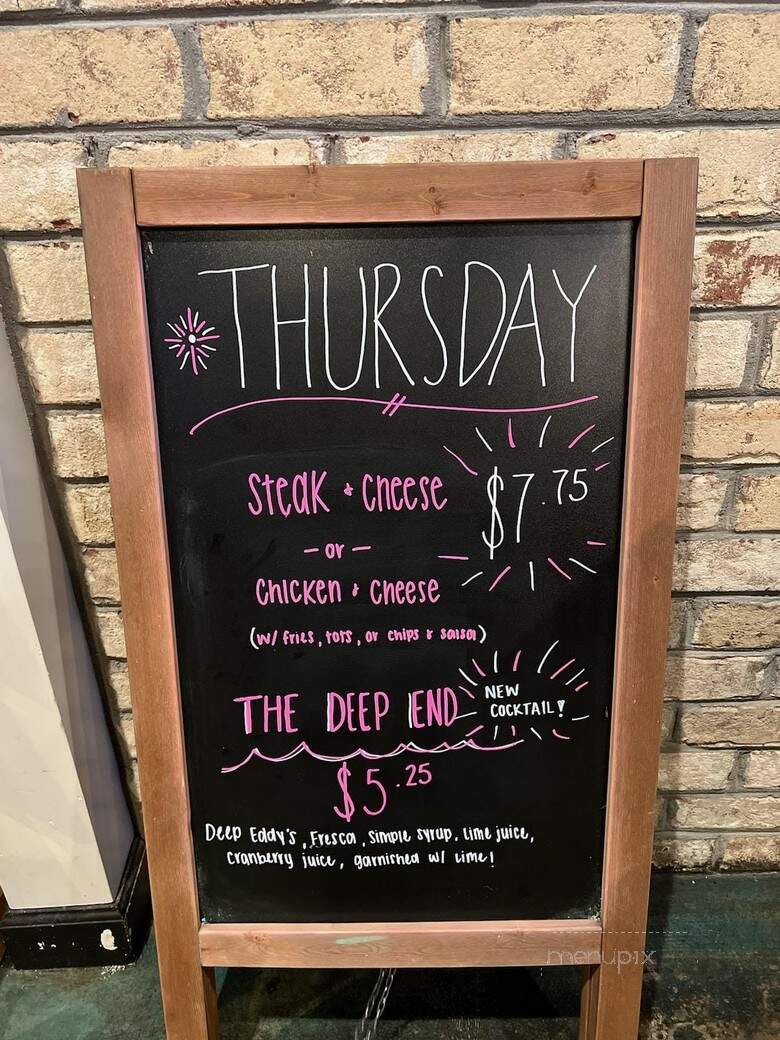 THURSDAY
Steak & Cheese $7.75
- or -
Chicken & Cheese
(w/ fries, tots, or chips & salsa)
THE DEEP END
NEW
COCKTAIL!
$5.25
Deep Eddy's, Fresca, Simple syrup, Lime juice,
Cranberry juice, garnished w/ Lime!
menupix